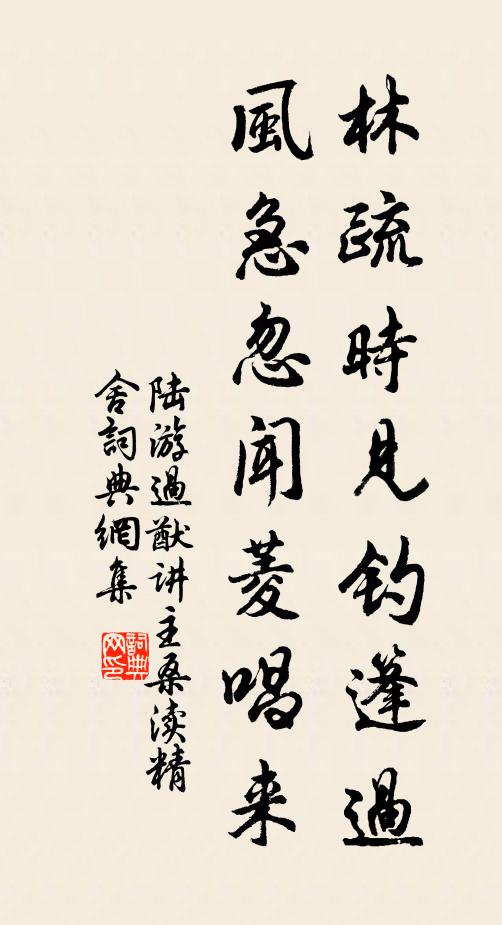 林疏時見釣蓬過
風急忽聞菱唱来
陆游過猷讲主桑渎精
舍詞典網集
詞典网印